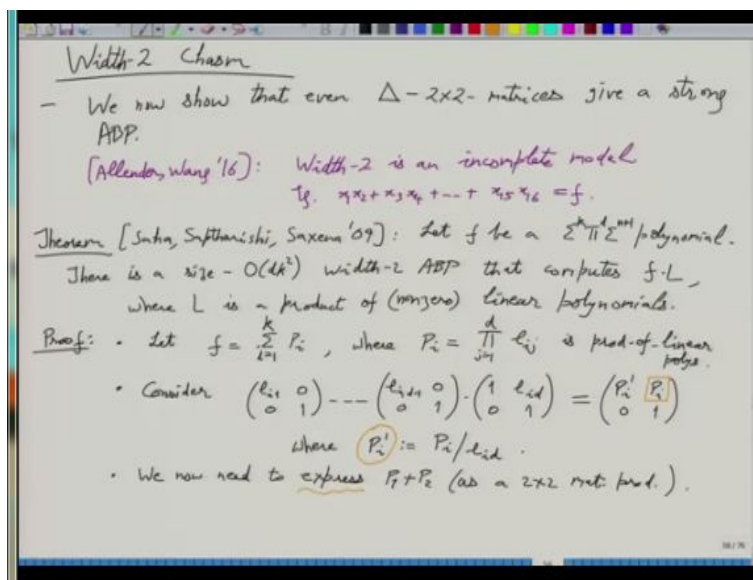 Width-2 Chasm
- We now show that even Δ-2x2-matrices give a strong
ABP.
[Allender, Wang '16]: Width-2 is an incomplete model
Eg. x₁x₂ + x₃x₄ + --- + x₁₅x₁₆ = f.
Theorem [Saha, Saptharishi, Saxena '09]: Let f be a Σᵏ Πᵈ Σⁿ⁺¹ polynomial.
There is a size-O(dk²) width-2 ABP that computes f·L,
where L is a product of (nonzero) linear polynomials.
Proof: • Let f = Σ_{i=1}^{k} P_i, where P_i = Π_{j=1}^{d} l_ij is prod-of-linear
polys.
• Consider (l_i1 0; 0 1) ---- (l_id-1 0; 0 1) · (1 l_id; 0 1) = (P_i' P_i; 0 1)
where P_i' := P_i/l_id.
• We now need to express P₁+P₂ (as a 2x2 mat. prod.).
56/76